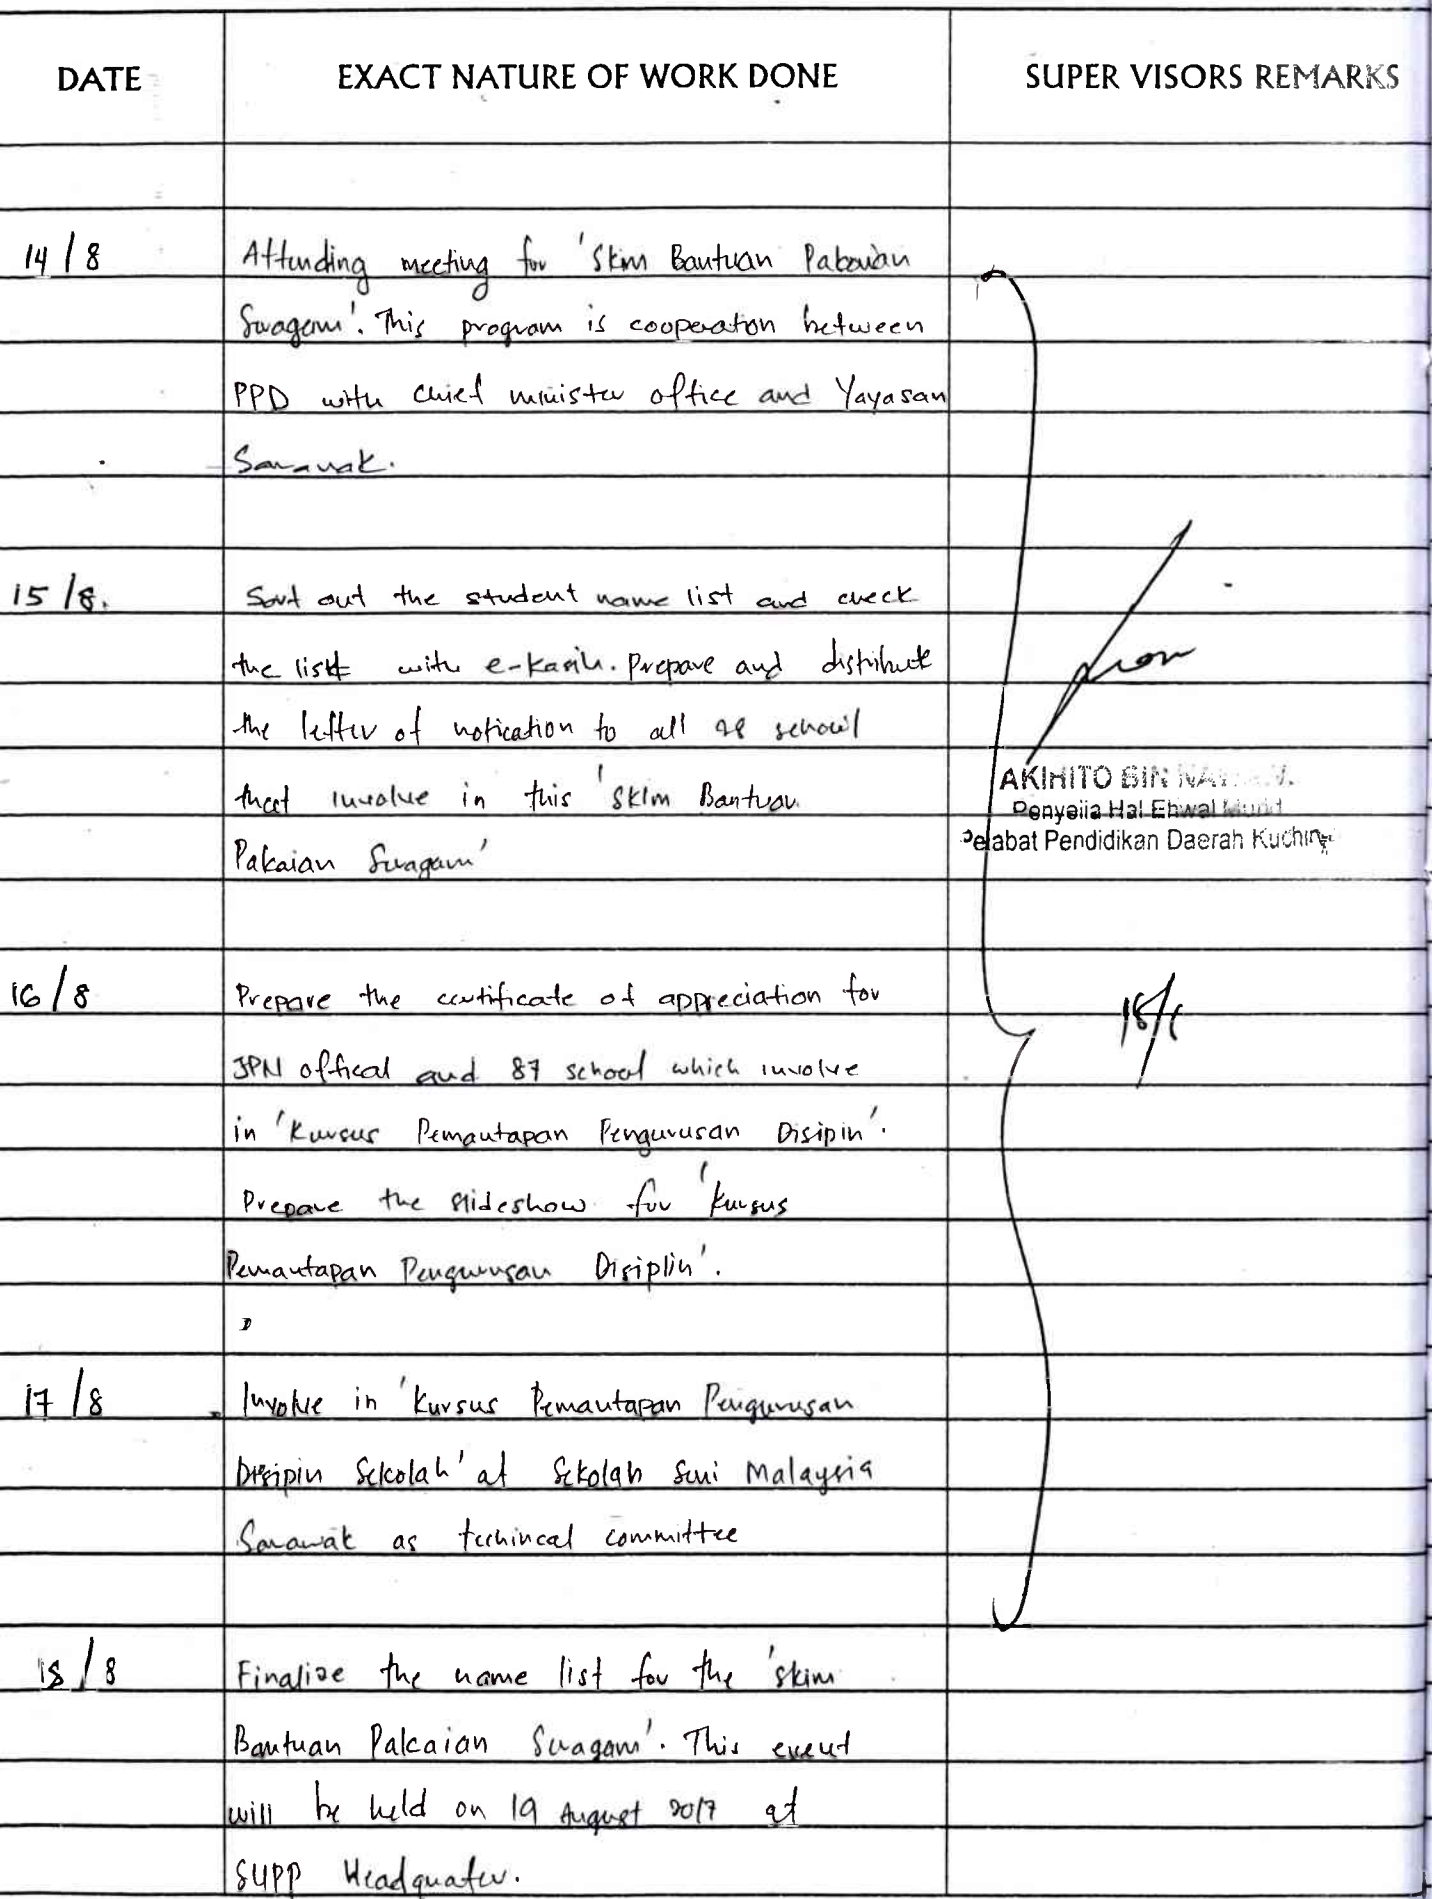 DATE EXACT NATURE OF WORK DONE SUPER VISORS REMARKS
14/8 Attending meeting for 'Skim Bantuan Pakaian
Seragam'. This program is cooperaton between
PPD with chief minister office and Yayasan
Sarawak.
15/8. Sort out the student name list and check
the list with e-kasih. Prepare and distribute
the letter of notication to all 28 school
that involve in this 'Skim Bantuan
Pakaian Seragam'
AKIHITO BIN
Penyelia Hal Ehwal Murid
Pejabat Pendidikan Daerah Kuching
16/8 Prepare the certificate of appreciation for
JPN offical and 87 school which involve
in 'Kursus Pemantapan Pengurusan Disipin'.
Prepare the slideshow for 'Kursus
Pemantapan Pengurusan Disiplin'.
17/8 Involve in 'Kursus Pemantapan Pengurusan
Disipin Sekolah' at Sekolah Seni Malaysia
Sarawak as techincal committee
18/8 Finalize the name list for the 'Skim
Bantuan Pakaian Seragam'. This event
will be held on 19 August 2017 at
SUPP Headquater.